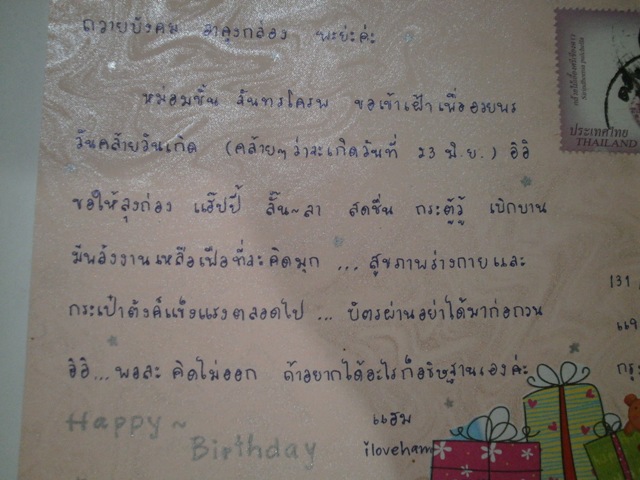 ถวายบังคม ลาลุงกล่อง พะย่ะค่ะ
หม่อมชั้น จันทรโครพ ขอเข้าเฝ้าเพื่ออวยพร
วันคล้ายวันเกิด (คล้ายๆว่าจะเกิดวันที่ 23 พ.ย.) อิอิ
ขอให้ลุงกล่อง แฮ๊ปปี้ ลั๊น~ลา สดชื่น กระตู้วู้ เบิกบาน
มีพลังงานเหลือเฟือที่จะคิดมุก ... สุขภาพร่างกายและ
กระเป๋าตังค์แข็งแรงตลอดไป ... บิตรผ่านอย่าได้มาก่อกวน
อิอิ... พอละ คิดไม่ออก ถ้าอยากได้อะไรก็อธิษฐานเองค่ะ
แฮม
iloveham
Happy~
Birthday
ประเทศไทย
THAILAND
131
แข
กรุง